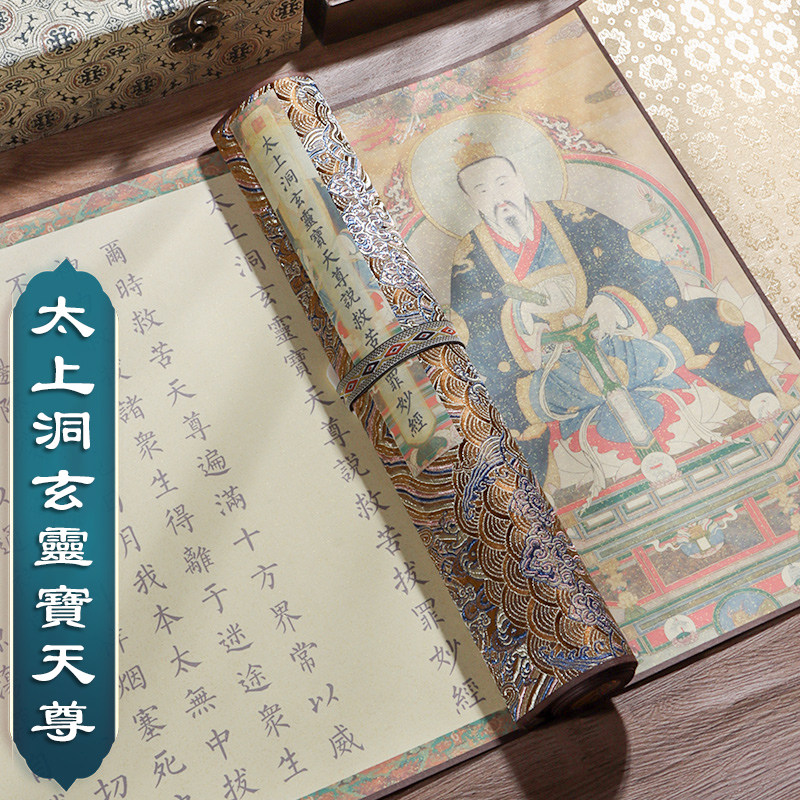 太上洞玄靈寶天尊
太上洞玄靈寶天尊說救苦罪妙經
太上洞玄靈寶天尊說救苦拔罪妙經
爾時救苦天尊遍滿十方界常以威
諸眾生得離于迷途眾生
月我本太無中拔
烟塞死
切